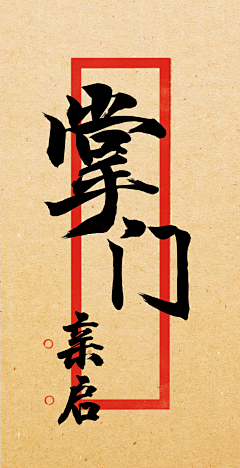 掌门
亲启